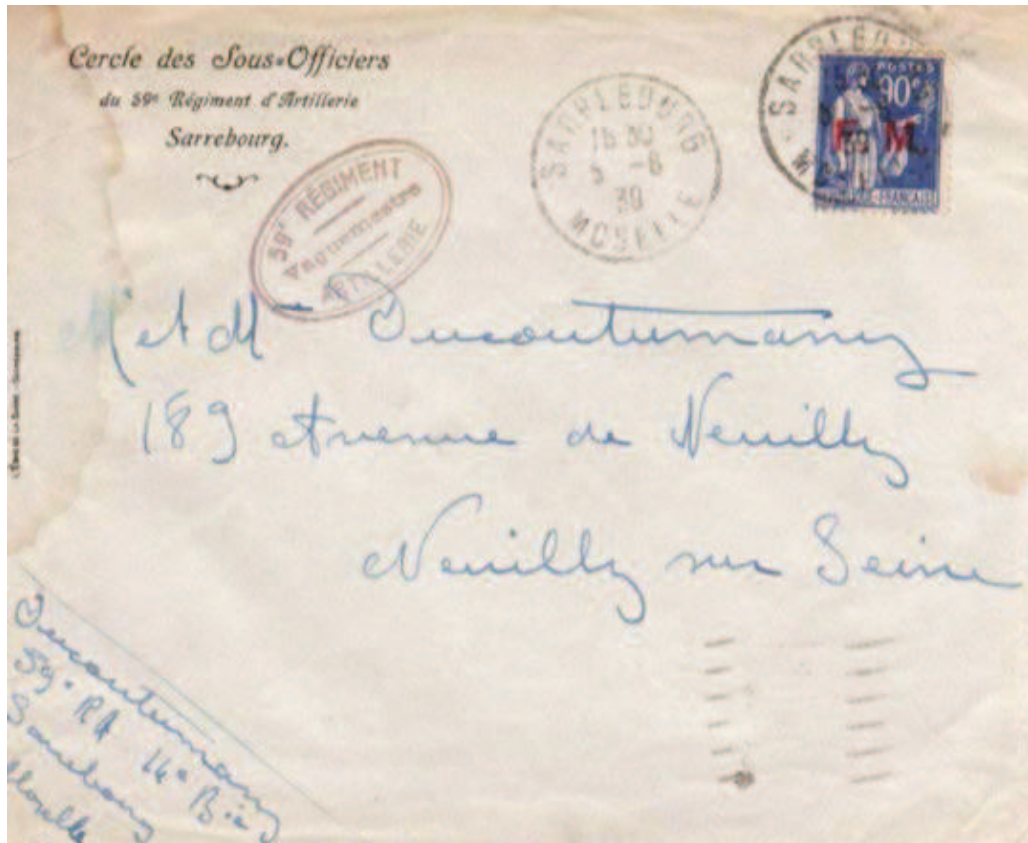 Cercle des Sous-Officiers
du 59e Régiment d'Artillerie
Sarrebourg.
59e RÉGIMENT
Vaguemestre
ARTILLERIE
SARREBOURG
16 30
5 -6
39
MOSELLE
SARREBOURG
POSTES
90c
F. M.
39
M et Mme Ducoutumany
189 Avenue de Neuilly
Neuilly sur Seine
Ducoutumany
59e RA 14e Bie
Sarrebourg
Moselle